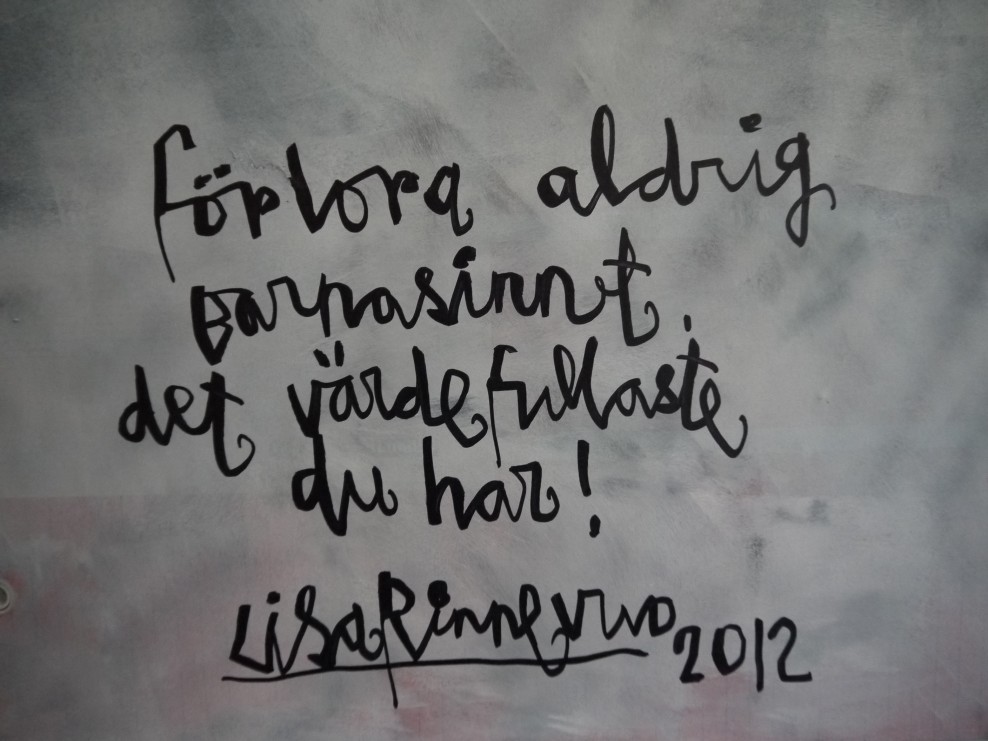 förlora aldrig
barnasinnt,
det värdefullaste
du har!
Lisa Rinnevuo 2012